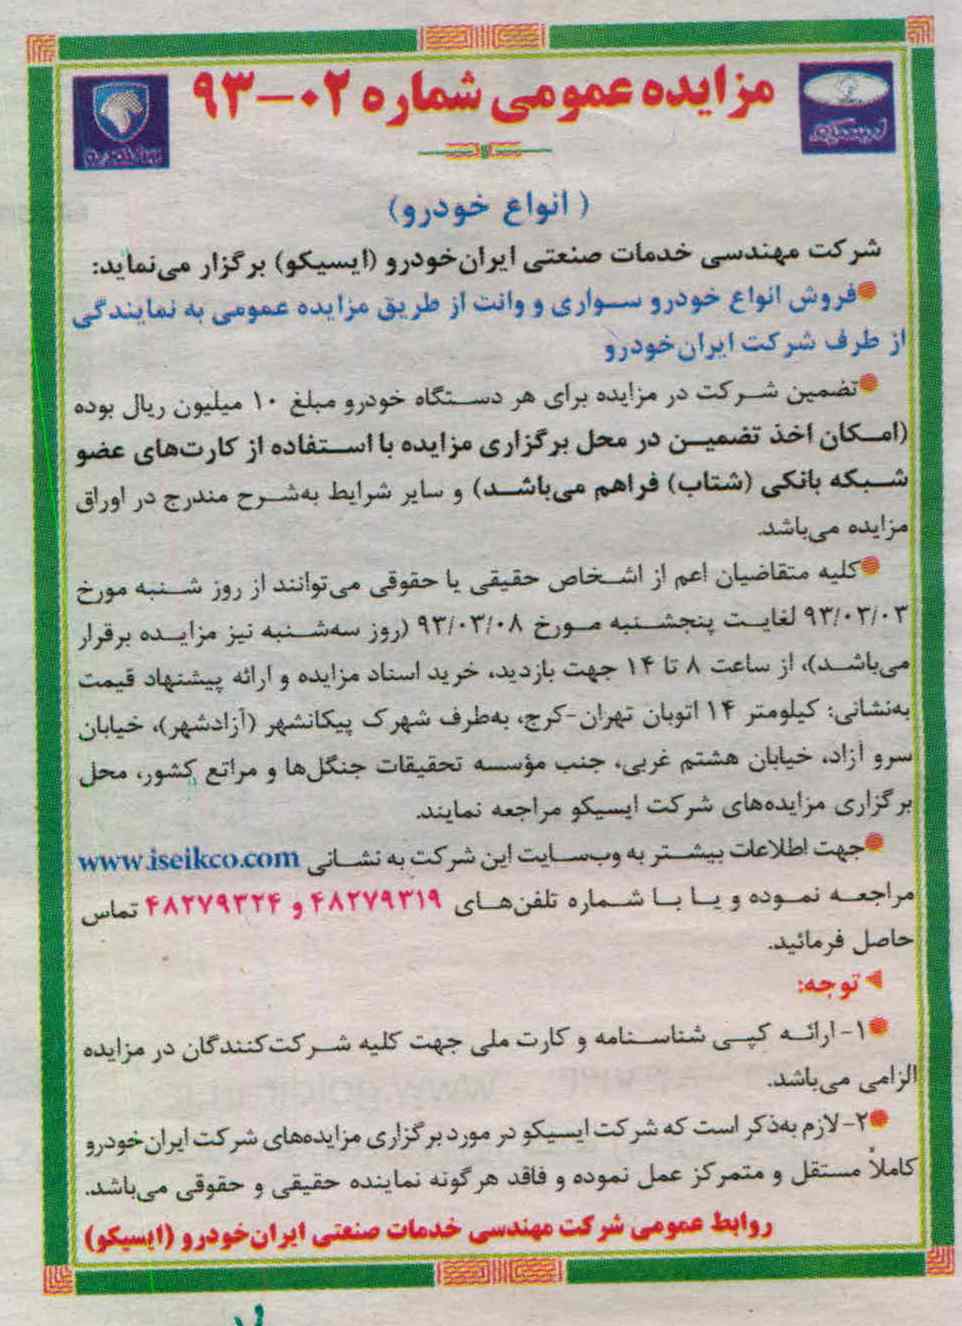 مزایده عمومی شماره ۰۲-۹۳
ایسیکو
ایران خودرو
(انواع خودرو)
شرکت مهندسی خدمات صنعتی ایران‌خودرو (ایسیکو) برگزار می‌نماید:
فروش انواع خودرو سواری و وانت از طریق مزایده عمومی به نمایندگی
از طرف شرکت ایران‌خودرو
تضمین شرکت در مزایده برای هر دستگاه خودرو مبلغ ۱۰ میلیون ریال بوده
(امکان اخذ تضمین در محل برگزاری مزایده با استفاده از کارت‌های عضو
شبکه بانکی (شتاب) فراهم می‌باشد) و سایر شرایط به‌شرح مندرج در اوراق
مزایده می‌باشد.
کلیه متقاضیان اعم از اشخاص حقیقی یا حقوقی می‌توانند از روز شنبه مورخ
۹۳/۰۳/۰۳ لغایت پنجشنبه مورخ ۹۳/۰۳/۰۸ (روز سه‌شنبه نیز مزایده برقرار
می‌باشد)، از ساعت ۸ تا ۱۴ جهت بازدید، خرید اسناد مزایده و ارائه پیشنهاد قیمت
به‌نشانی: کیلومتر ۱۴ اتوبان تهران-کرج، به‌طرف شهرک پیکانشهر (آزادشهر)، خیابان
سرو آزاد، خیابان هشتم غربی، جنب مؤسسه تحقیقات جنگل‌ها و مراتع کشور، محل
برگزاری مزایده‌های شرکت ایسیکو مراجعه نمایند.
جهت اطلاعات بیشتر به وب‌سایت این شرکت به نشانی www.iseikco.com
مراجعه نموده و یا با شماره تلفن‌های ۴۸۲۷۹۳۱۹ و ۴۸۲۷۹۳۲۴ تماس
حاصل فرمائید.
توجه:
۱- ارائه کپی شناسنامه و کارت ملی جهت کلیه شرکت‌کنندگان در مزایده
الزامی می‌باشد.
۲- لازم به‌ذکر است که شرکت ایسیکو در مورد برگزاری مزایده‌های شرکت ایران‌خودرو
کاملاً مستقل و متمرکز عمل نموده و فاقد هرگونه نماینده حقیقی و حقوقی می‌باشد.
روابط عمومی شرکت مهندسی خدمات صنعتی ایران‌خودرو (ایسیکو)